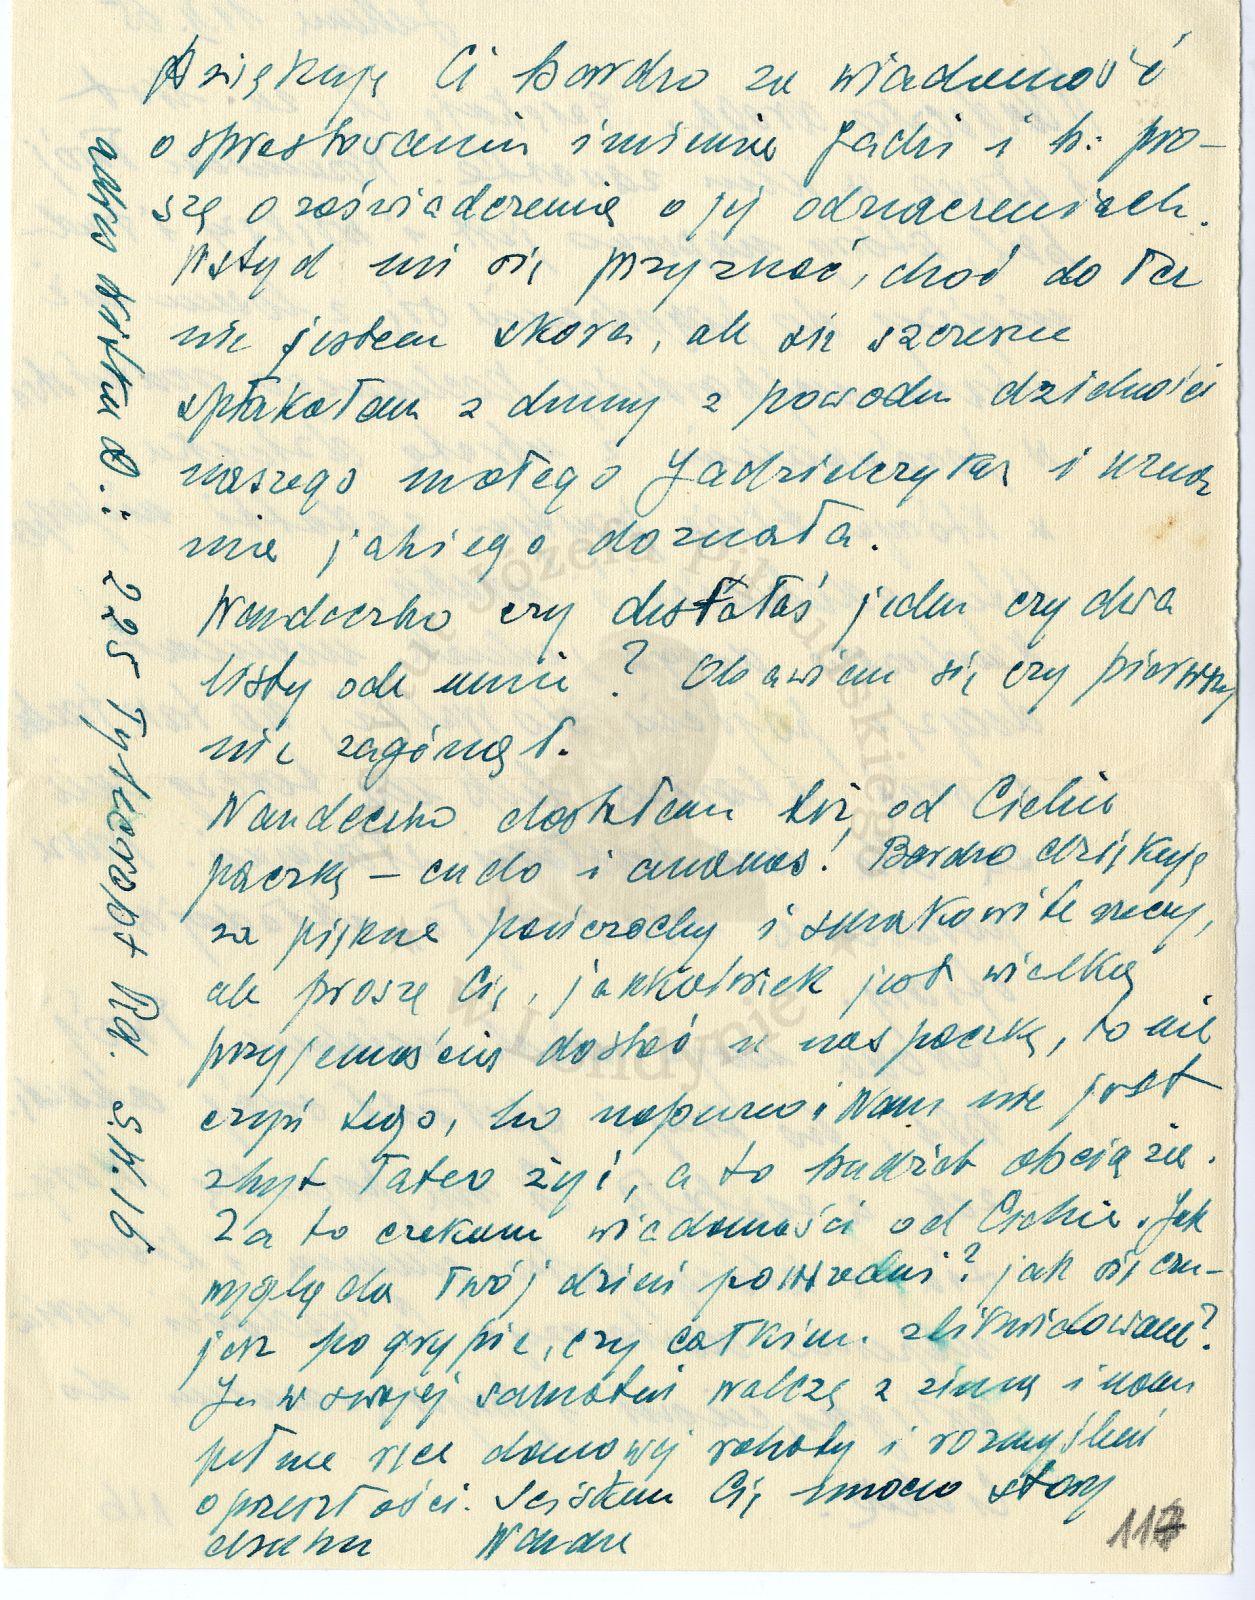 Dziękuję Ci bardzo za wiadomość
o sprostowaniu imienia Jadzi i b. pro-
szę o zaświadczenie o jej odznaczeniach.
Wstyd mi się przyznać, choć do łez
nie jestem skora, ale się szczerze
spłakałam z dumy z powodu dzielności
naszego małego Jadzielczyka i uzna
nia jakiego doznała.
Wandeczko czy dostałaś jeden czy dwa
listy ode mnie? Obawiam się czy pierwszy
nie zaginął.
Wandeczko dostałam też od Ciebie
paczkę – cudo i ananas! Bardzo dziękuję
za piękne pończochy i smakowite rzeczy,
ale proszę Cię, jakkolwiek jest wielką
przyjemością dostać u nas paczkę, to nie
czyń tego, bo napewno i Wam nie jest
zbyt łatwo żyć, a to budżet obciąża.
Za to czekam wiadomości od Ciebie. Jak
wygląda Twój dzień powszedni? jak się czu-
jesz po grypie, czy całkiem zlikwidowana?
Ja w swojej samotni walczę z zimą i mam
pełne ręce domowej roboty i rozmyślań
o przeszłości. Ściskam Cię mocno stary
druhu Wanda
117
adres 225 Tytherington Rd. S.W.16
w Londynie